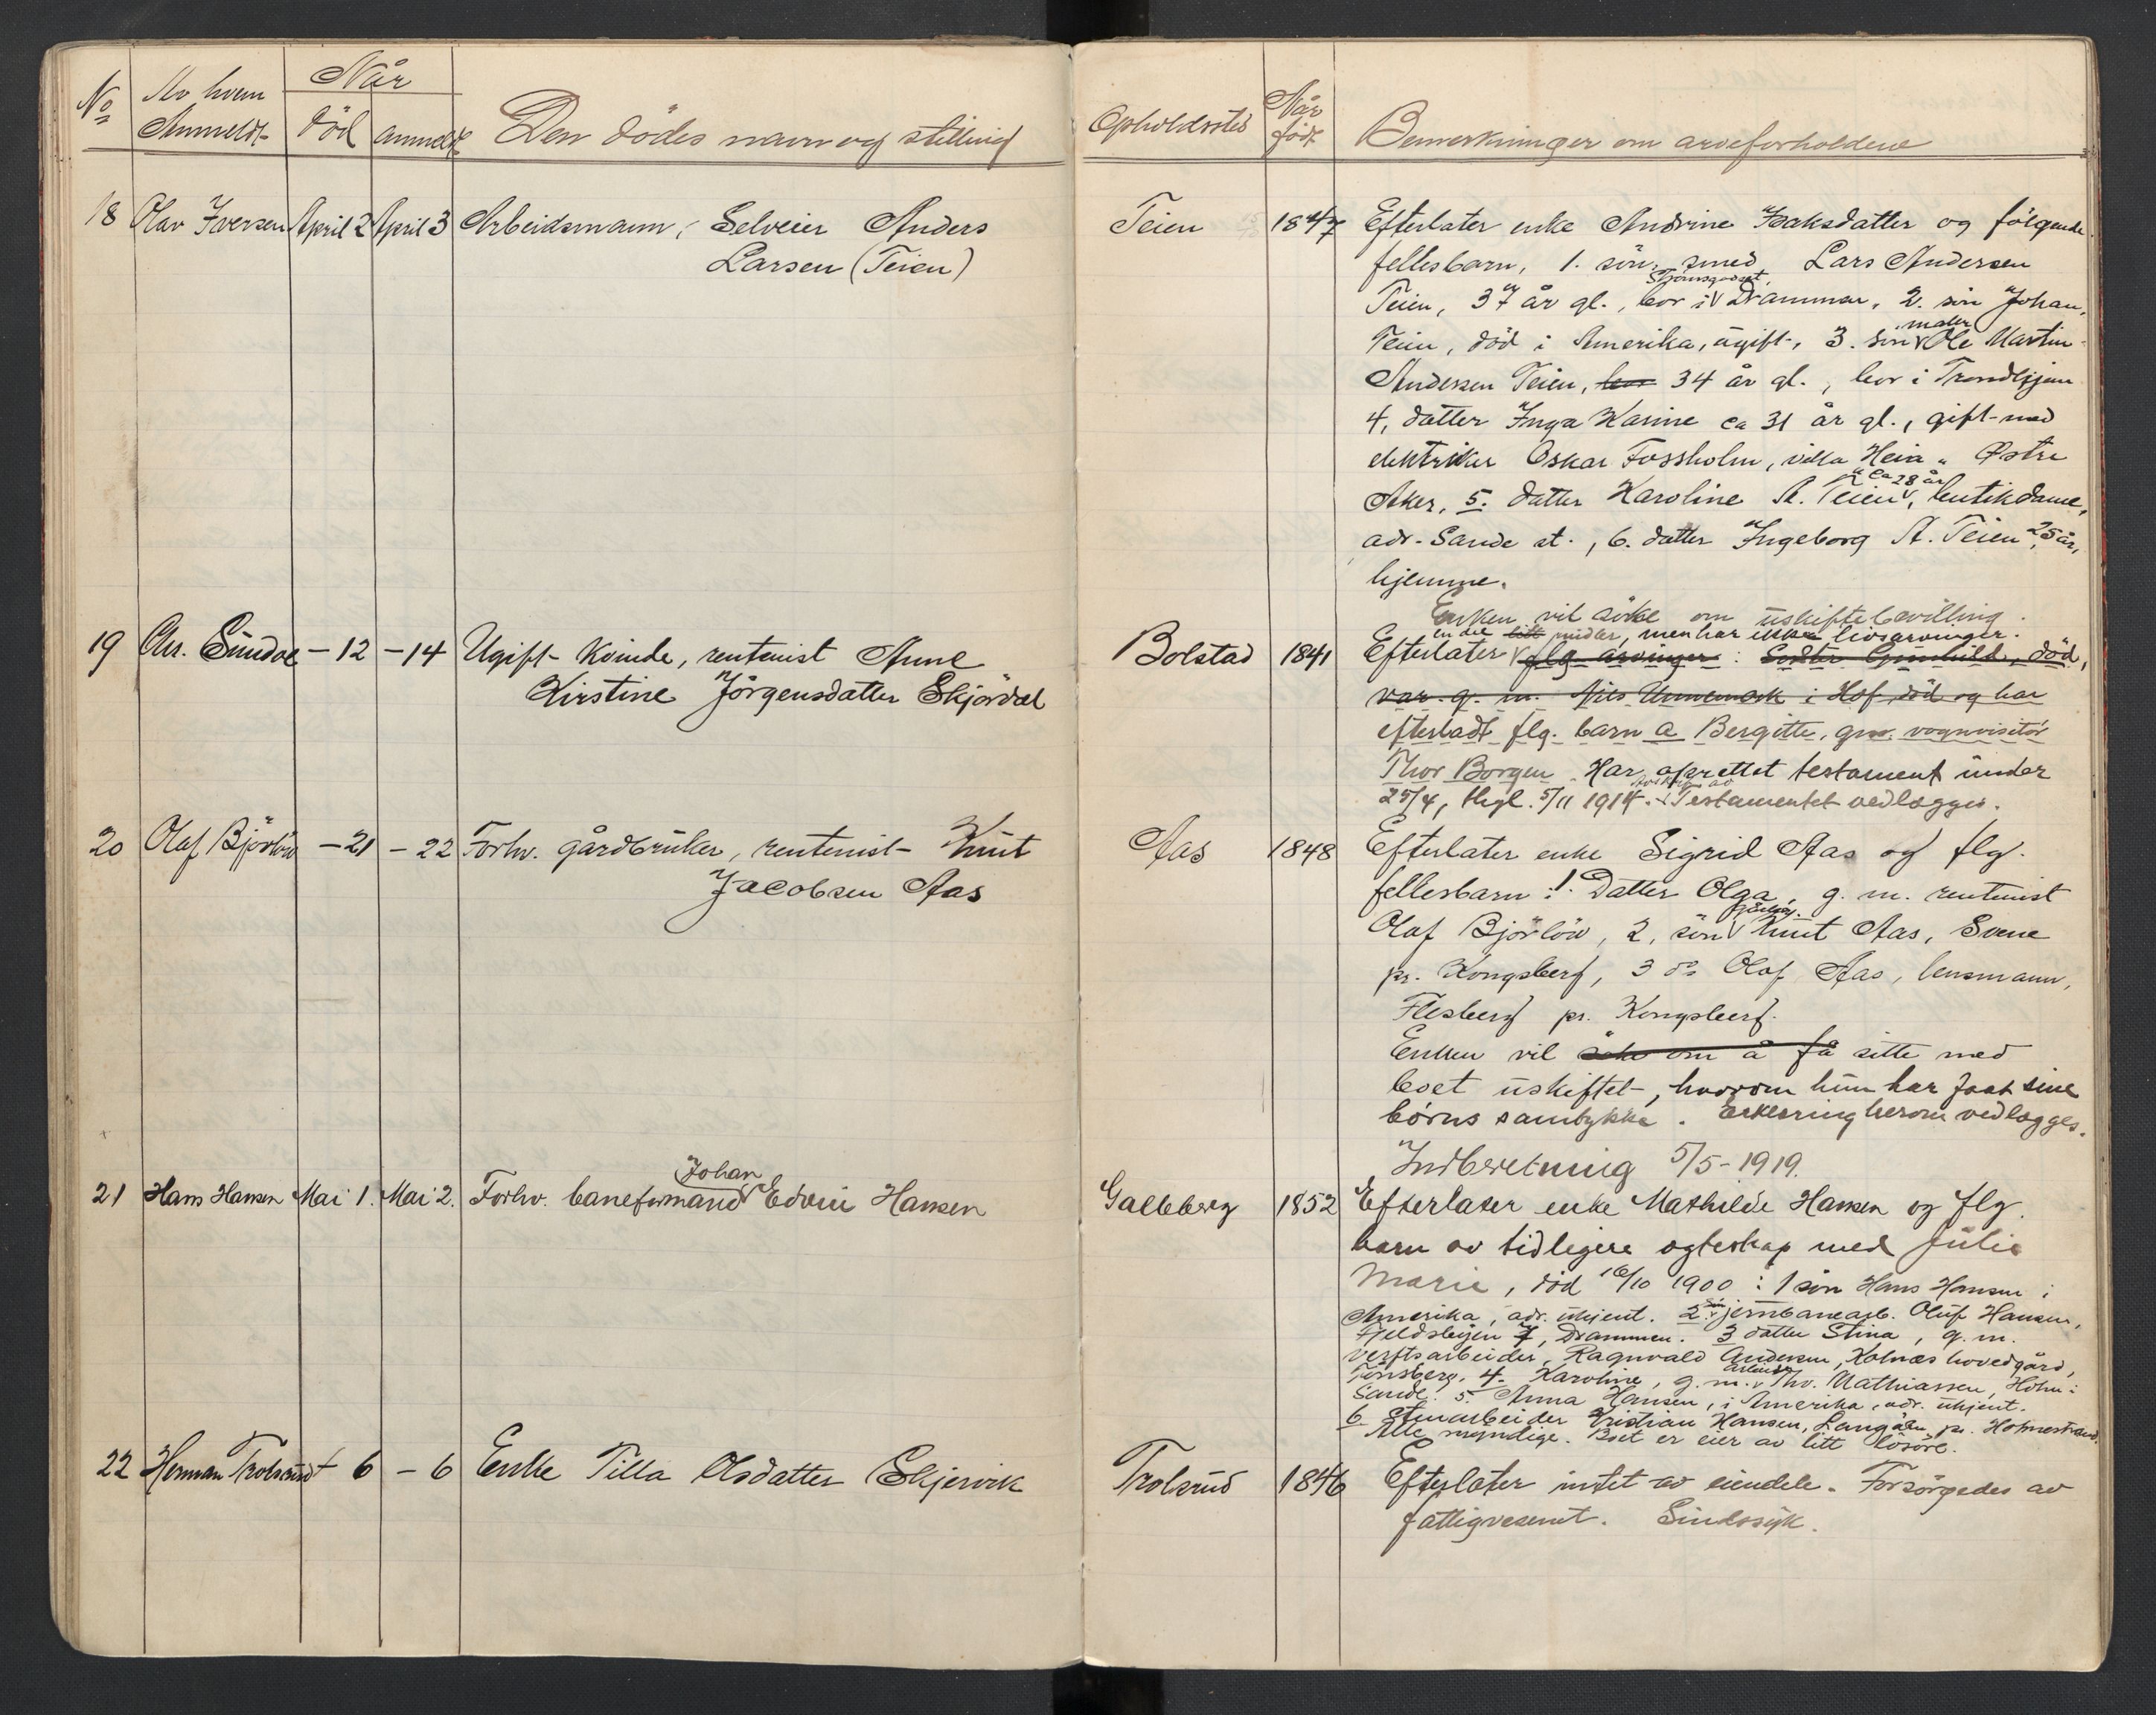 No Av hvem Anmeldt Når død anmeldt Den dödes navn og stilling Opholdssted Når födt Bemerkninger om arveforholdene
18 Olav Iversen April 2 April 3 Arbeidsmann, Selveier Anders
Larsen (Teien)
Teien 1847 Efterlater enke Andrine Isaksdatter og fölgende
fellesbarn, 1. sön, smed Lars Andersen
Teien, 37 år gl., bor i Strömsgodset, Drammen, 2. sön Johan
Teien, död i Amerika, ugift, 3. sön maler Ole Martin
Andersen Teien, bor 34 år gl., bor i Trondhjem
4, datter Inga Karine ca 31 år gl., gift med
elektriker Oskar Fossholm, villa "Heia" Østre
Aker, 5. datter Karoline A. Teien, ca 28 år, butikdame,
adr. Sande st., 6. datter Ingeborg A. Teien, 25 år,
hjemme.
Enken vil söke om uskiftebevilling.
19 An. Sundoe - 12 - 14 Ugift kvinde, rentenist Anne
Kirstine Jörgensdatter Skjördal
Bolstad 1841 Efterlater en del litt midler, men har ikke livsarvinger.
flg. arvinger: Söster Gunhild, död,
var g. m. Nils Unnemork i Hof, död og har
efterladt flg. barn a Bergitte, gm. vognvisitör
Thor Borgen. Har oprettet testament under
25/4, thgl. 5/11 1914. Avskrift av Testamentet vedlægges.
20 Olaf Björlöw - 21 - 22 Forhv. gårdbruker, rentenist Knut
Jacobsen Aas
Aas 1848 Efterlater enke Sigrid Aas og flg.
fellesbarn: 1. Datter Olga, g. m. rentenist
Olaf Björlöw, 2, sön Knut Aas, Svene
pr. Kongsberg, 3 do Olof Aas, lensmann,
Flesberg pr. Kongsberg.
Enken vil söke om å få sitte med
boet uskiftet, hvorom hun har faat sine
börns samtykke. Erklering herom vedlægges.
Indberetning 5/5-1919.
21 Hans Hansen Mai 1. Mai 2. Forhv. baneformand Johan Edvin Hansen
Galleberg 1852 Efterlater enke Mathilde Hansen og flg.
barn av tidligere egteskap med Julie
Marie, död 16/10 1900: 1 sön Hans Hansen i
Amerika, adr. ukjent. 2. sön jernbanearb. Oluf Hansen,
Fjeldsbyen 7, Drammen. 3 datter Stina, g. m.
verftsarbeider Ragnvald Andersen, Kolnes hovedgård,
Tönsberg. 4. Karoline, g. m. arbeider Thv. Mathiassen, Holm i
Sande. 5. Anna Hansen, i Amerika, adr. ukjent.
6 Stenarbeider Kristian Hansen, Langöen pr. Holmestrand.
Alle myndige. Boet er eier av litt lösöre.
22 Herman Trolsrud - 6 - 6 Enke Tilla Olsdatter Skjervik
Trolsrud 1846 Efterlater intet av eiendele. Forsörgedes av
fattigvesenet. Sindssyk.